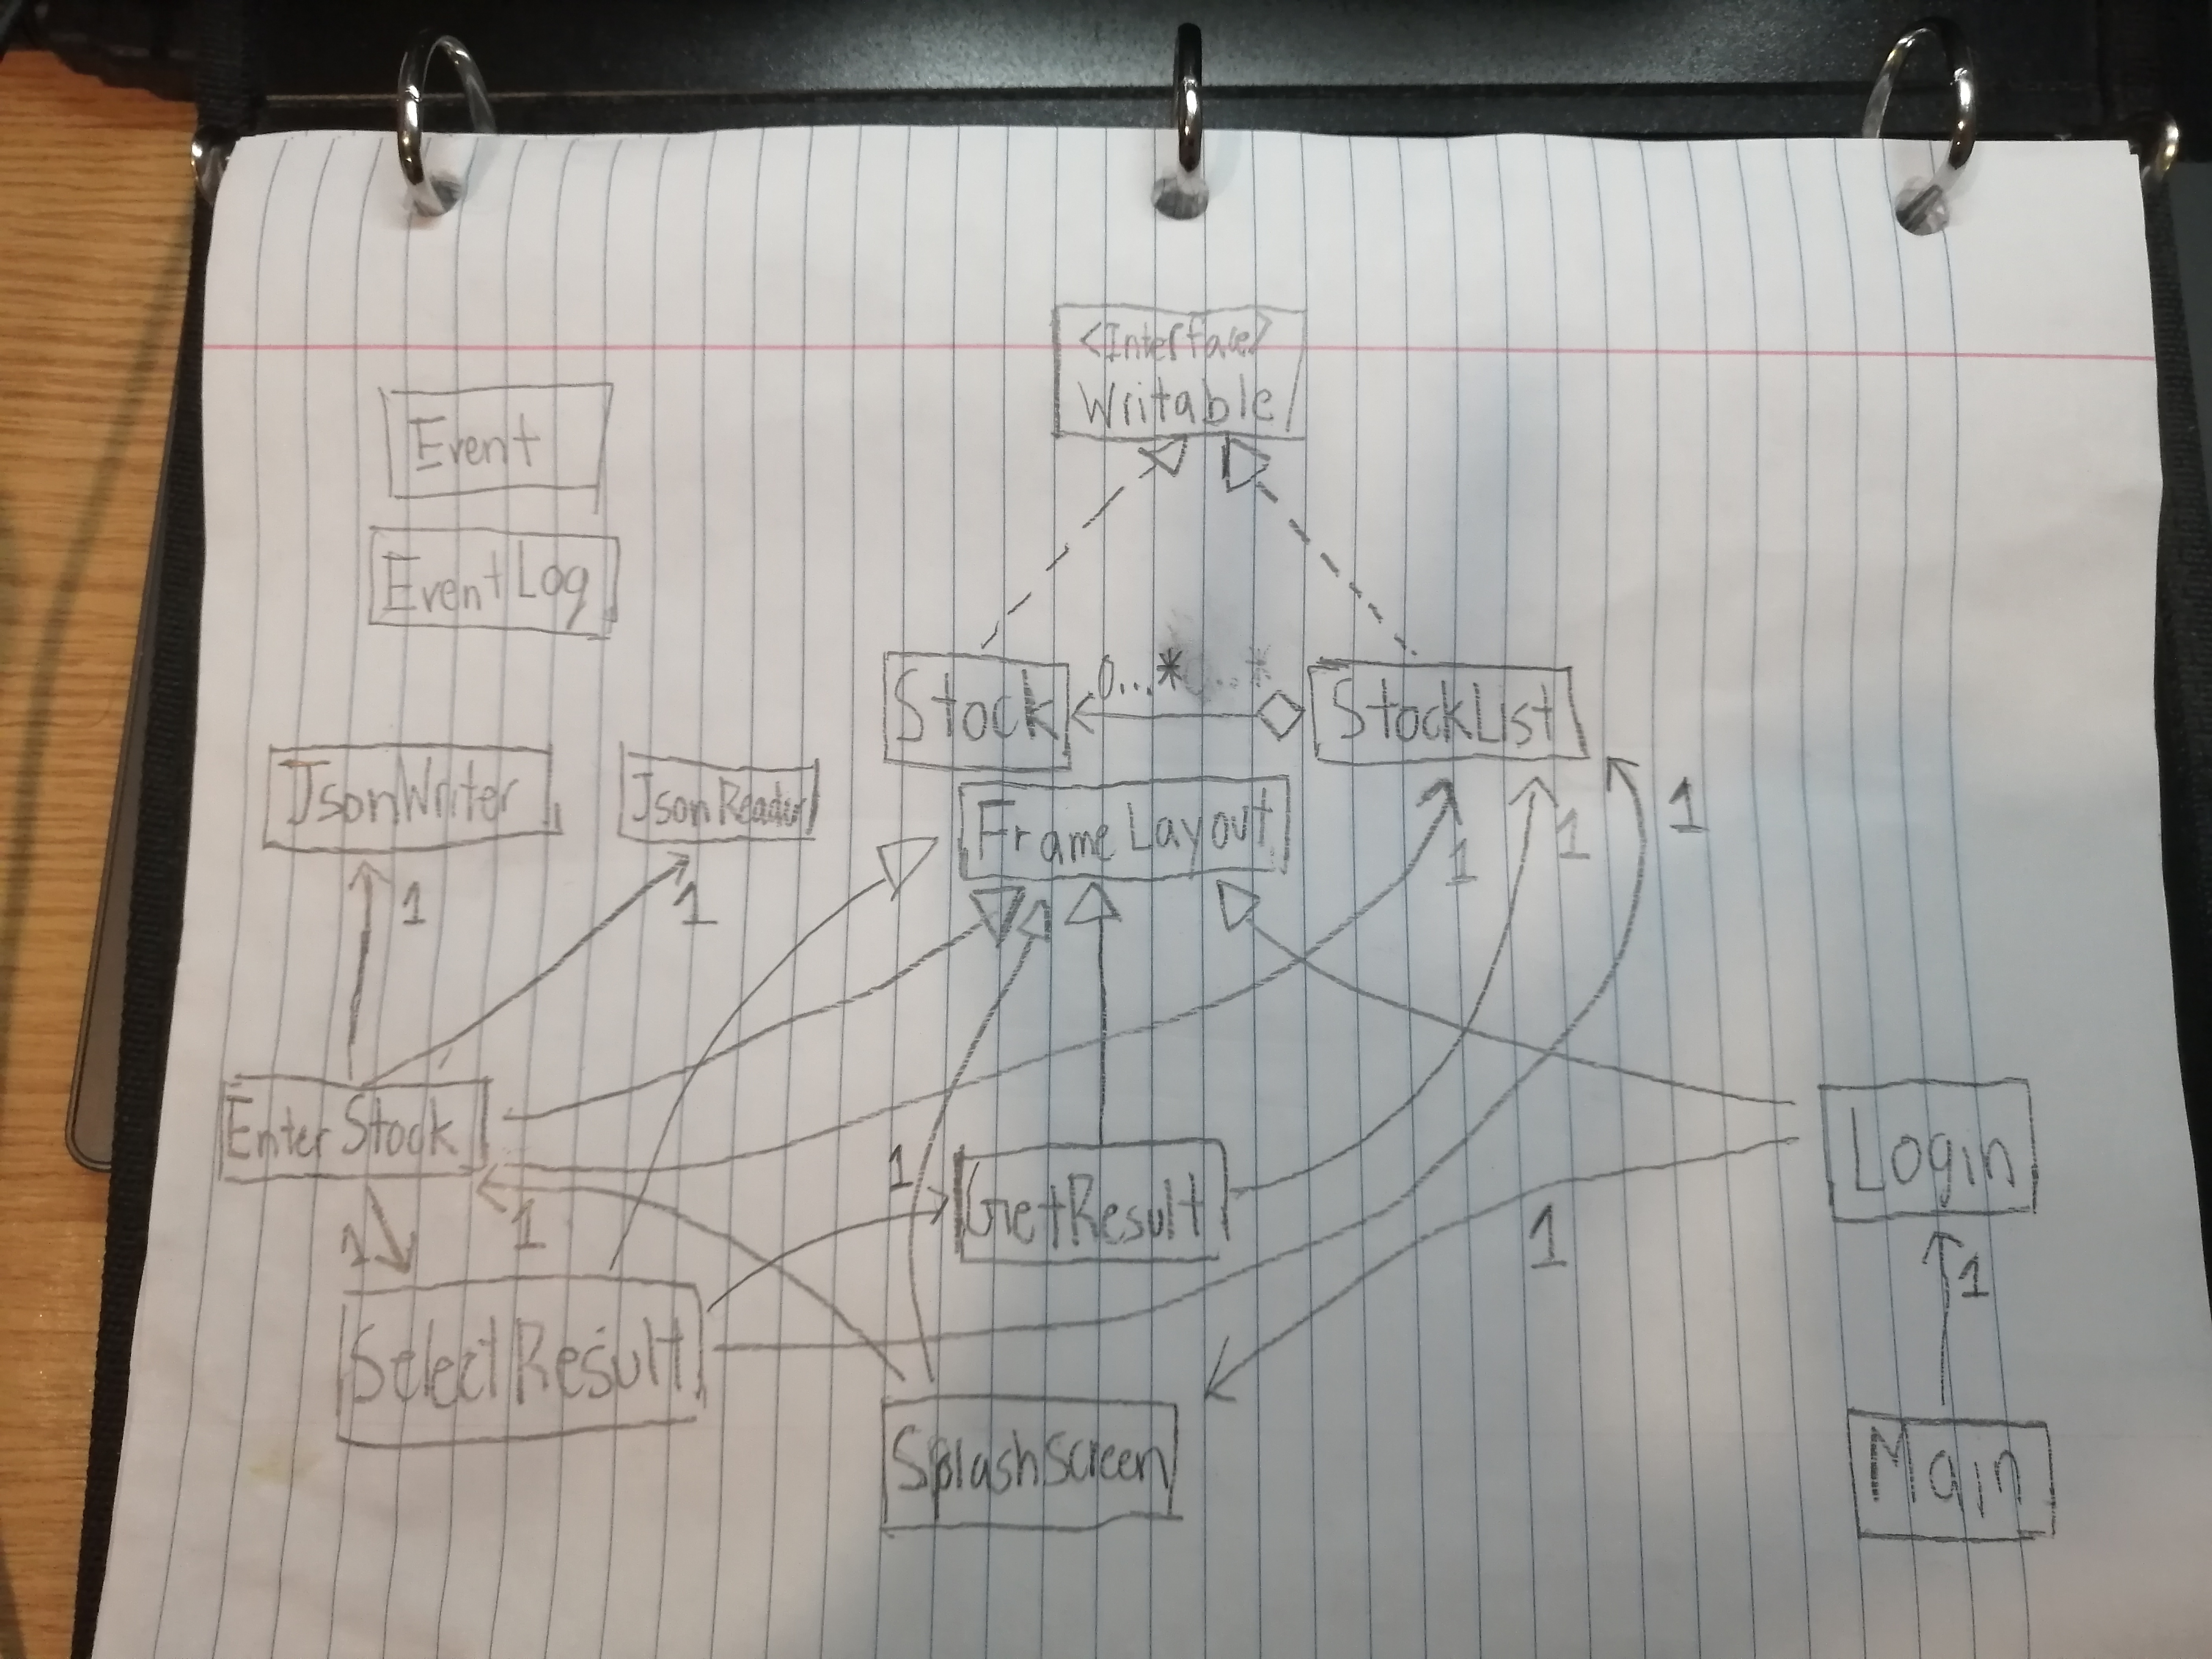 <Interface>
Writable
Event
EventLog
0...*
Stock
StockList
JsonWriter
JsonReader
FrameLayout
1
1
1
1
1
EnterStock
Login
1
GetResult
1
1
1
1
SelectResult
SplashScreen
Main